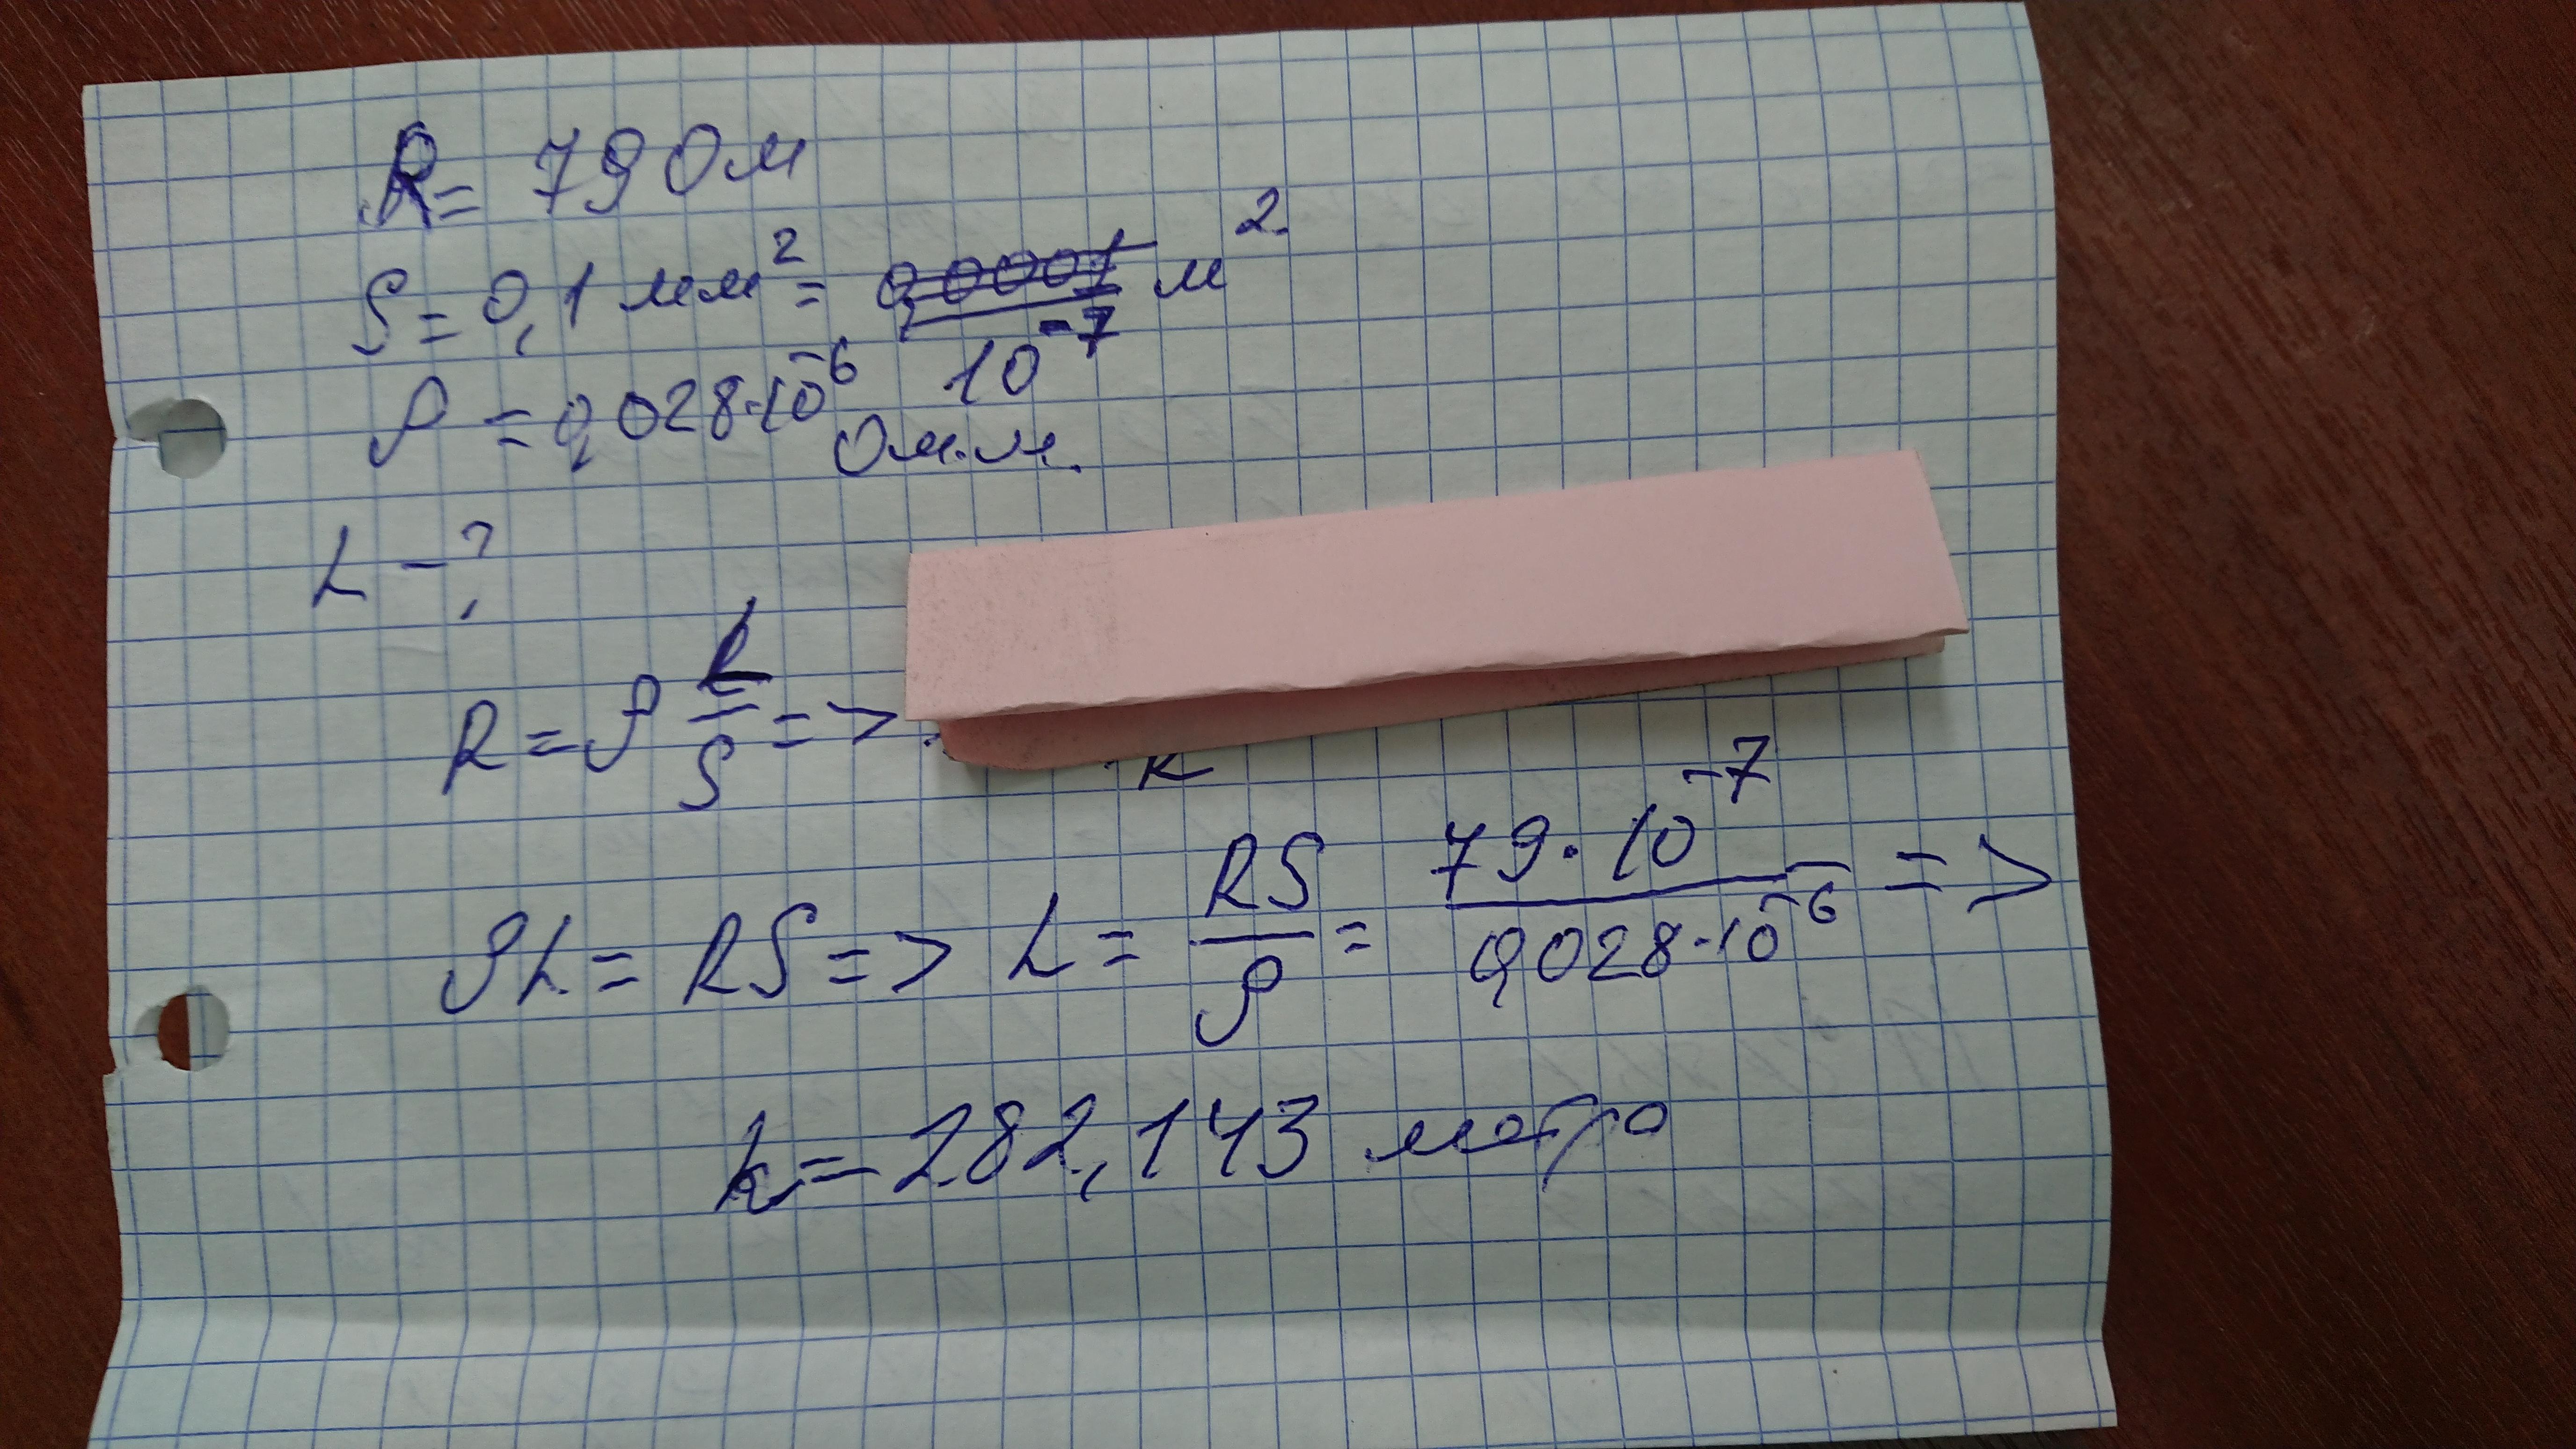 R = 79 Ом
S = 0,1 мм² = ~~0,0001~~ м²
10⁻⁷
ρ = 0,028·10⁻⁶
Ом·м.
L - ?
R = ρ L/S =>
ρL = RS => L = RS/ρ = 79·10⁻⁷/0,028·10⁻⁶ =>
L = 282,143 метра